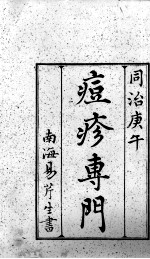 同治庚午
痘疹專門
南海易芹生書